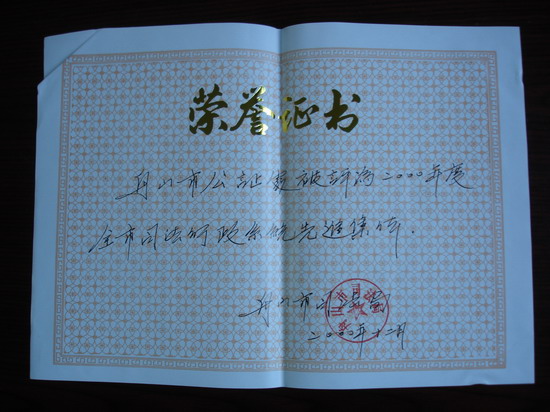 荣誉证书
舟山市公证处被评为二000年度
全市司法行政系统先进集体.
舟山市司法局
二000年十二月